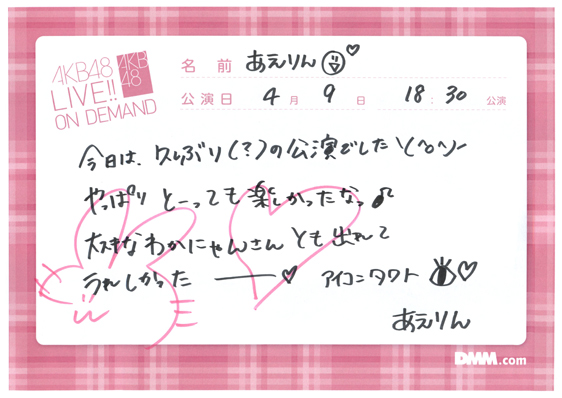 AKB48
LIVE!!
ON DEMAND
AKB
48
名前 あえりん♡
公演日 4月9日 18:30公演
今日は、久しぶり(?)の公演でした\(^o^)/
やっぱり とーっても楽しかったなっ♪
大好きなわかにゃんさんとも出れて
うれしかったー♡ アイコンタクト♡
あえりん
DMM.com